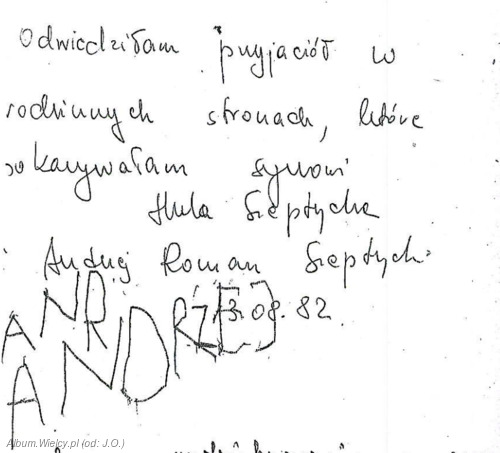 Odwiedziłam przyjaciół w
rodzinnych stronach, które
pokazywałam synowi
Sieptycka
i Andrzej Roman Sieptycki
13.08.82
ANDR
ANDRZEJ
Album.Wielcy.pl (od: J.O.)